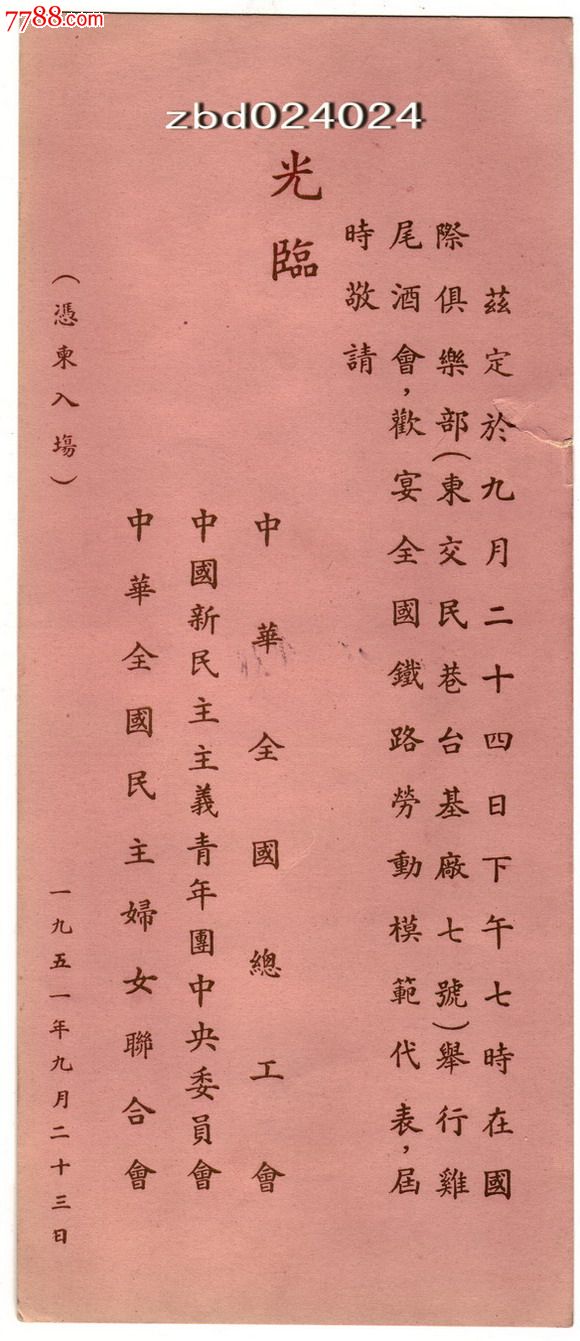 7788.com
zbd024024
茲定於九月二十四日下午七時在國
際俱樂部(東交民巷台基廠七號)舉行雞
尾酒會,歡宴全國鐵路勞動模範代表,屆
時敬請
光臨
中華全國總工會
中國新民主主義青年團中央委員會
中華全國民主婦女聯合會
一九五一年九月二十三日
(憑柬入場)